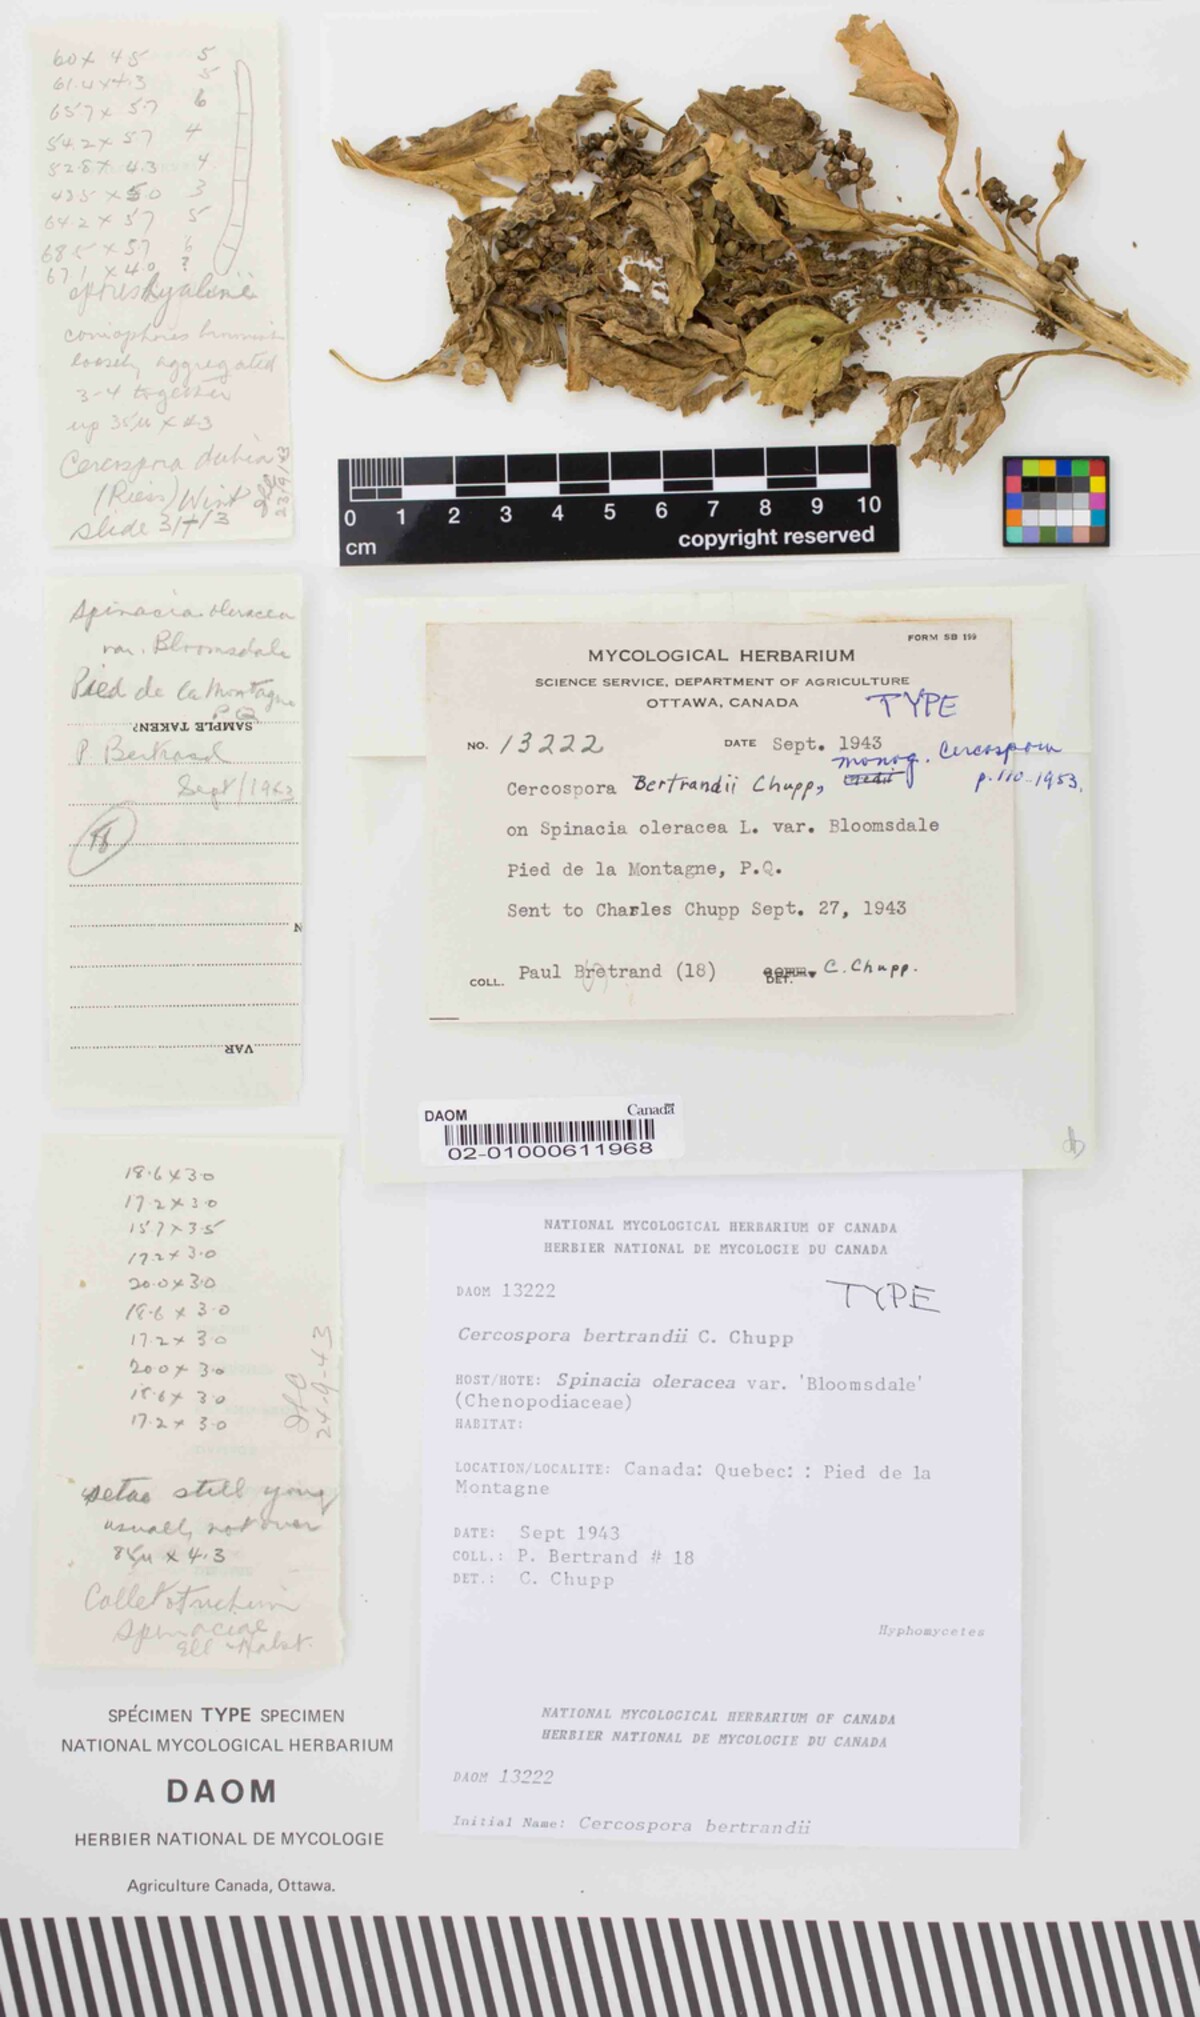 60 x 4.5 5
61.4 x 4.3 5
65.7 x 5.7 6
54.2 x 5.7 4
52.8 x 4.3 4
48.5 x 5.0 3
64.2 x 5.7 5
68.5 x 5.7 6
67.1 x 4.0 ?
hyaline
loosely aggregated
3-4 together
up 35µ x 4.3
Cercospora dubia
(Riess) Wint
slide 31/13
23/9/43
0 1 2 3 4 5 6 7 8 9 10
cm
copyright reserved
Spinacia oleracea
var. Bloomsdale
Pied de la Montagne
P.Q
SAMPLE TAKEN?
P. Bertrand
Sept/1943
18
N
VAR
FORM SB 199
MYCOLOGICAL HERBARIUM
SCIENCE SERVICE, DEPARTMENT OF AGRICULTURE
OTTAWA, CANADA
TYPE
NO. 13222 DATE Sept. 1943
Cercospora Bertrandii Chupp, monog. Cercospora
p.110-1953.
on Spinacia oleracea L. var. Bloomsdale
Pied de la Montagne, P.Q.
Sent to Charles Chupp Sept. 27, 1943
COLL. Paul Bertrand (18) DET. C. Chupp.
DAOM Canada
02-01000611968
18.6 x 3.0
17.2 x 3.0
15.7 x 3.5
17.2 x 3.0
20.0 x 3.0
18.6 x 3.0
17.2 x 3.0
20.0 x 3.0
18.6 x 3.0
17.2 x 3.0
24-9-43
setae still young
usually not over
x 4.3
Colletotrichum
spinaciae
Ell & Halst.
NATIONAL MYCOLOGICAL HERBARIUM OF CANADA
HERBIER NATIONAL DE MYCOLOGIE DU CANADA
DAOM 13222
TYPE
Cercospora bertrandii C. Chupp
HOST/HOTE: Spinacia oleracea var. 'Bloomsdale'
(Chenopodiaceae)
HABITAT:
LOCATION/LOCALITE: Canada: Quebec: : Pied de la
Montagne
DATE: Sept 1943
COLL.: P. Bertrand # 18
DET.: C. Chupp
Hyphomycetes
NATIONAL MYCOLOGICAL HERBARIUM OF CANADA
HERBIER NATIONAL DE MYCOLOGIE DU CANADA
DAOM 13222
Initial Name: Cercospora bertrandii
SPÉCIMEN TYPE SPECIMEN
NATIONAL MYCOLOGICAL HERBARIUM
DAOM
HERBIER NATIONAL DE MYCOLOGIE
Agriculture Canada, Ottawa.